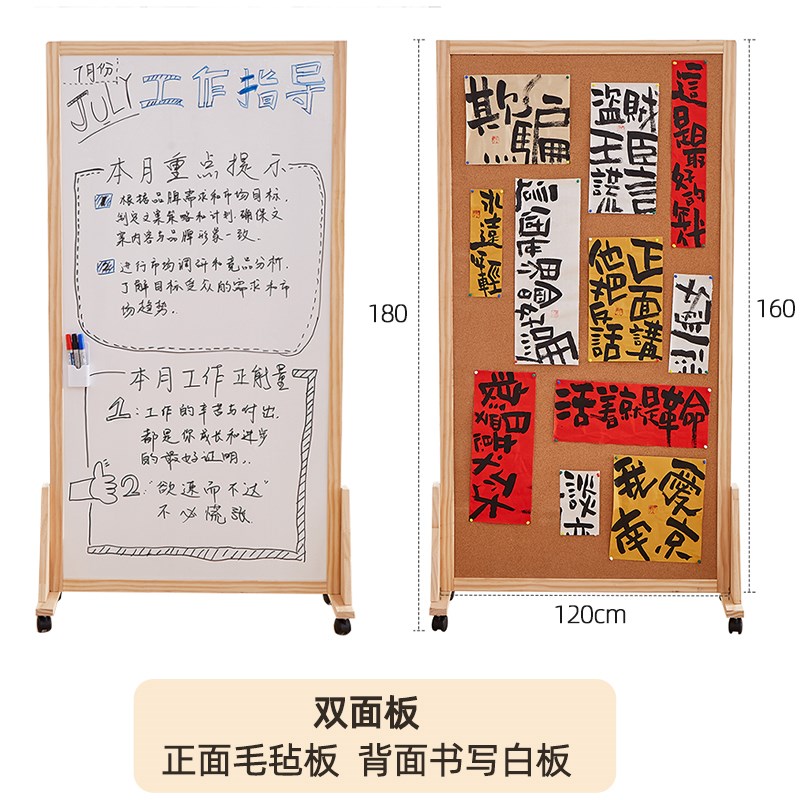 7月份:
JULY
工作指导
本月重点提示
1 根据品牌需求和市场目标,
制定文案策略和计划,确保文
案内容与品牌形象一致.
2 进行市场调研和竞品分析,
了解目标受众的需求和市
场趋势.
本月工作正能量
1:工作的辛苦与付出,
都是你成长和进步
的最好证明.
2:"欲速而不达"
不必慌张.
180
欺騙
盜賊
王臣
謊言
這是最好的年代
永遠年輕
正面講
他把反話
活著就是革命
談
我愛
南京
160
120cm
双面板
正面毛毡板 背面书写白板